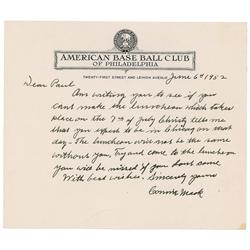 AMERICAN BASE BALL CLUB
OF PHILADELPHIA
TWENTY-FIRST STREET AND LEHIGH AVENUE
June 6th 1952
Dear Paul
Am writing you to see if you
cant make the luncheon which takes
place on the 7th of July Christy tells me
that you expect to be in on that
day. The luncheon will not be the same
without you, Try and come to the luncheon
you will be missed if you dont come
With best wishes. Sincerely yours
Connie Mack